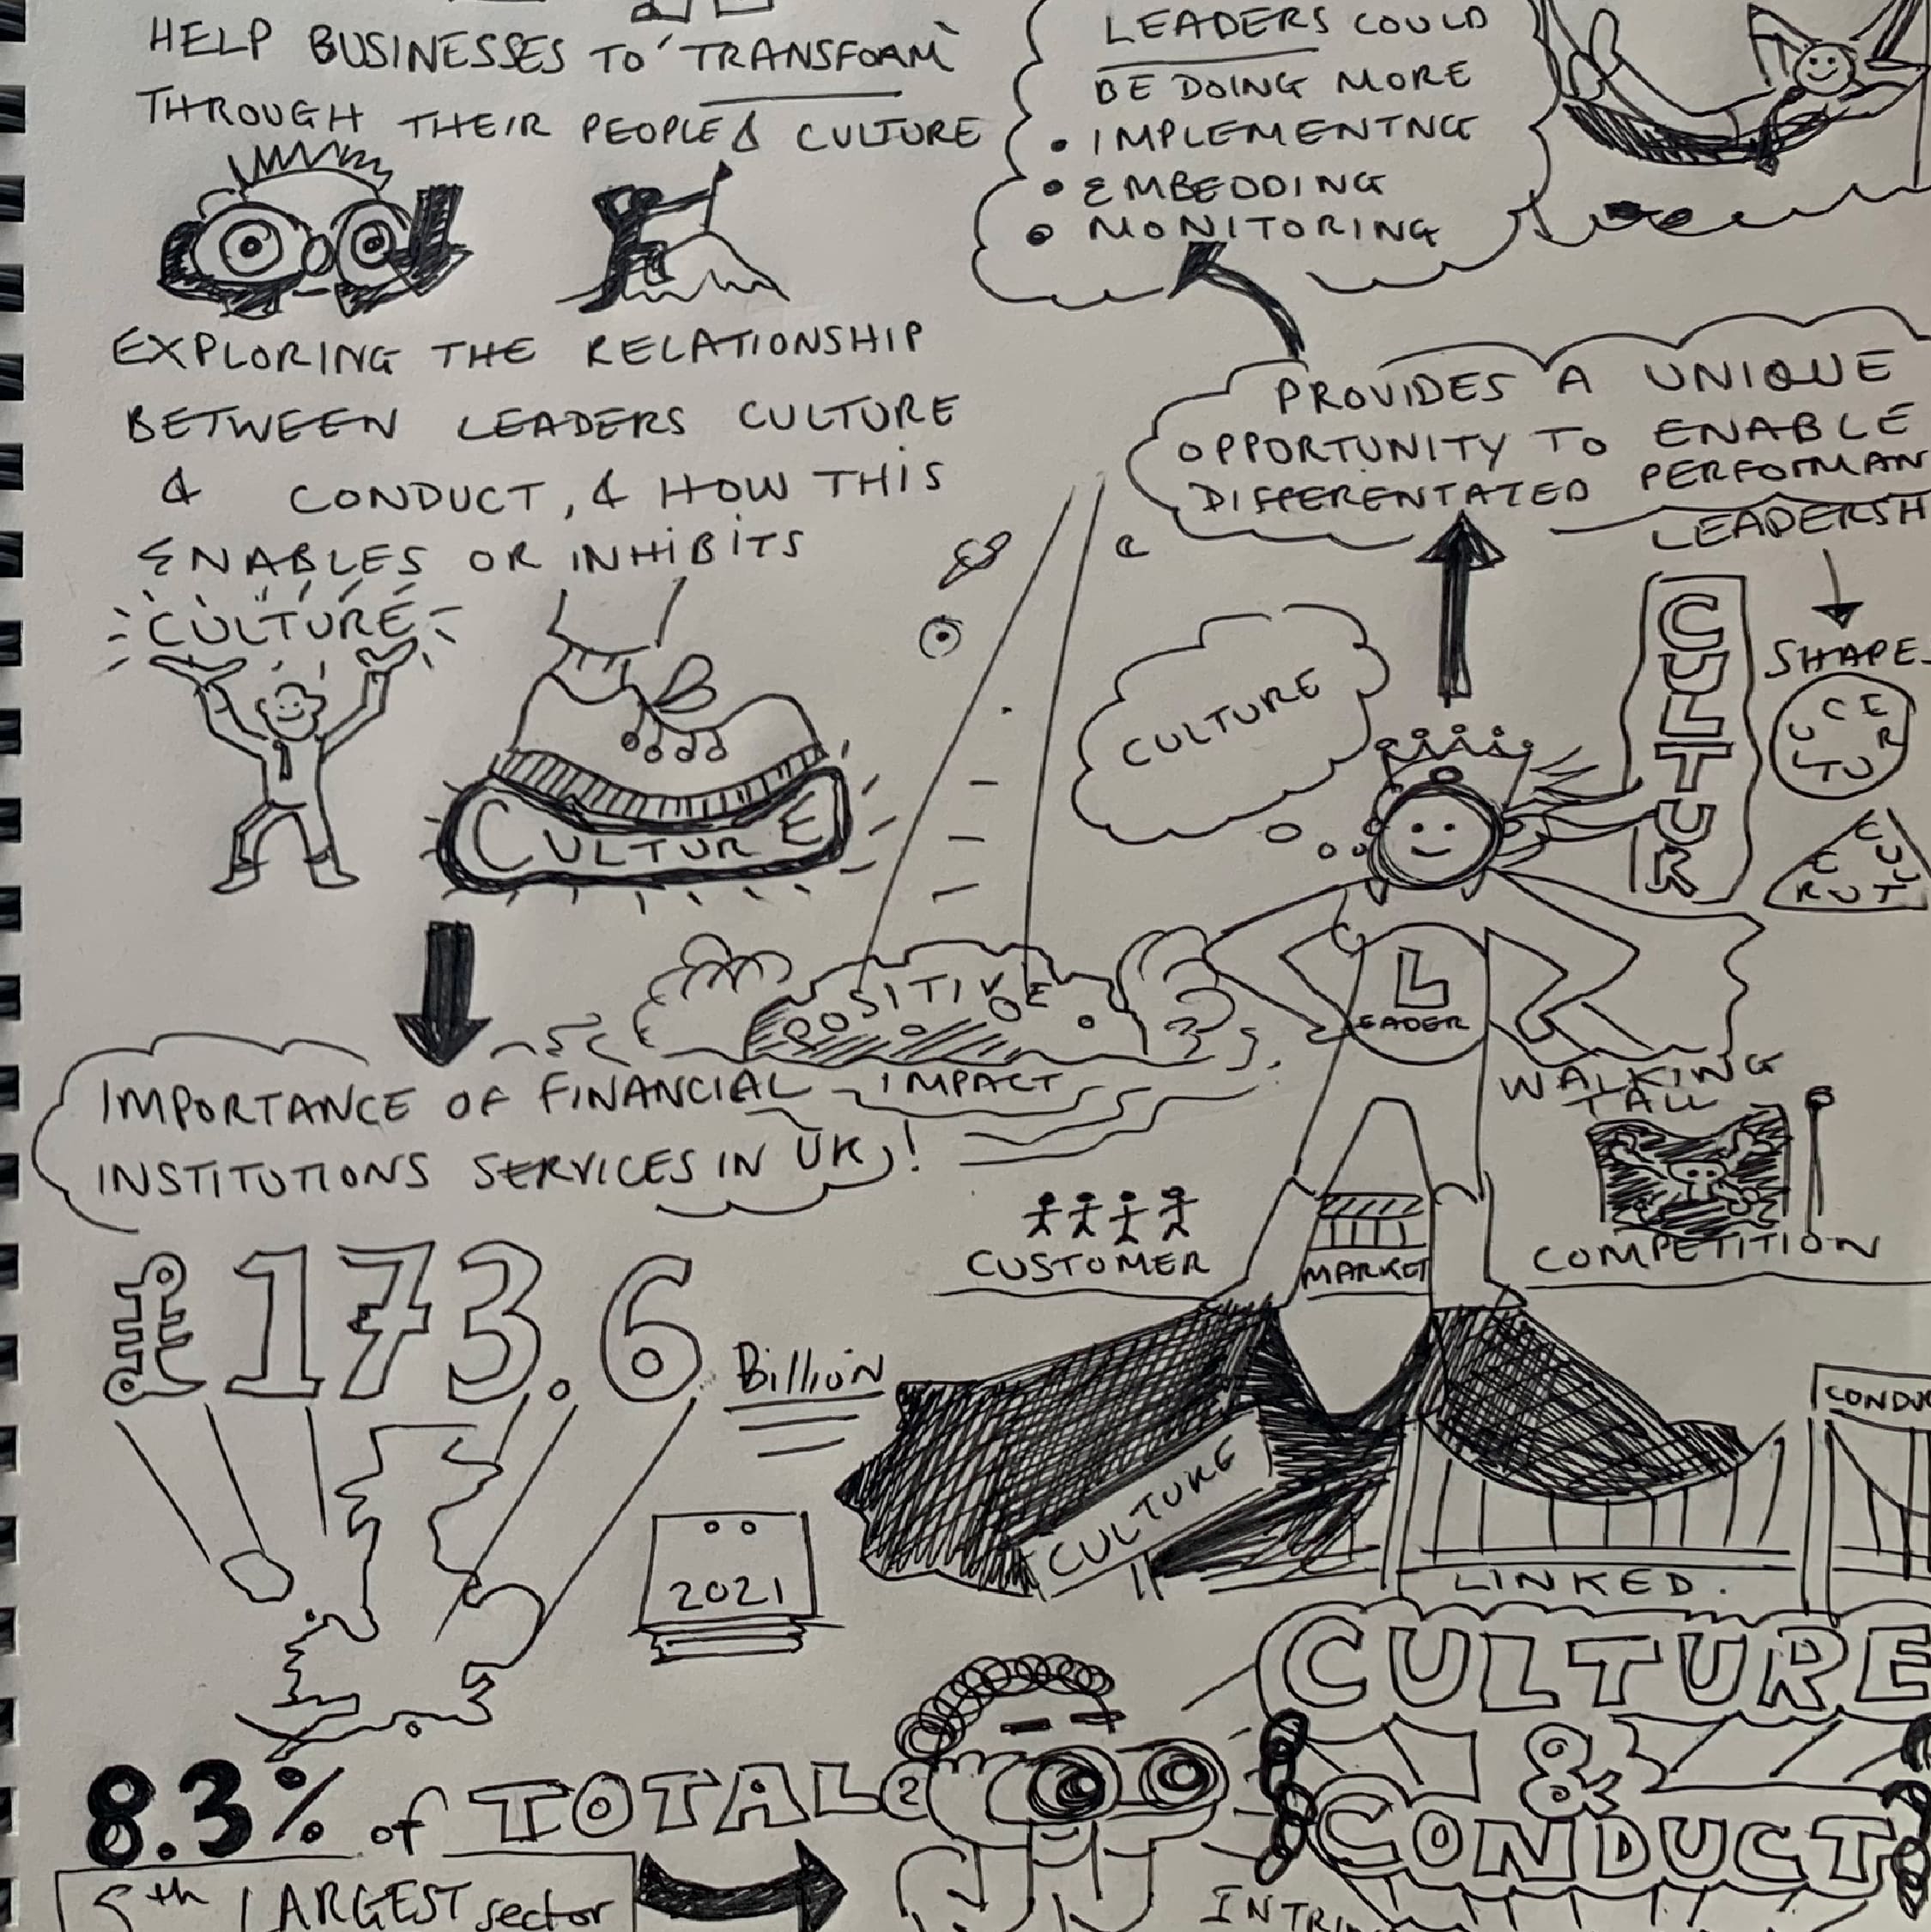 HELP BUSINESSES TO 'TRANSFORM'
THROUGH THEIR PEOPLE & CULTURE
EXPLORING THE RELATIONSHIP
BETWEEN LEADERS CULTURE
& CONDUCT, & HOW THIS
ENABLES OR INHIBITS
CULTURE
CULTURE
LEADERS COULD
BE DOING MORE
• IMPLEMENTNG
• EMBEDDING
• MONITORING
PROVIDES A UNIQUE
OPPORTUNITY TO ENABLE
DIFFERENTATED PERFORMAN
LEADERSH
SHAPE
CULTUR
CULTURE
L
EADER
WALKING
TALL
POSITIVE
IMPACT
IMPORTANCE OF FINANCIAL
INSTITUTIONS SERVICES IN UK!
£173.6 Billion
2021
8.3% of TOTAL
5th LARGEST sector
CUSTOMER
MARKET
COMPETITION
CULTURE
CONDU
LINKED.
CULTURE
&
CONDUCT
INTRI